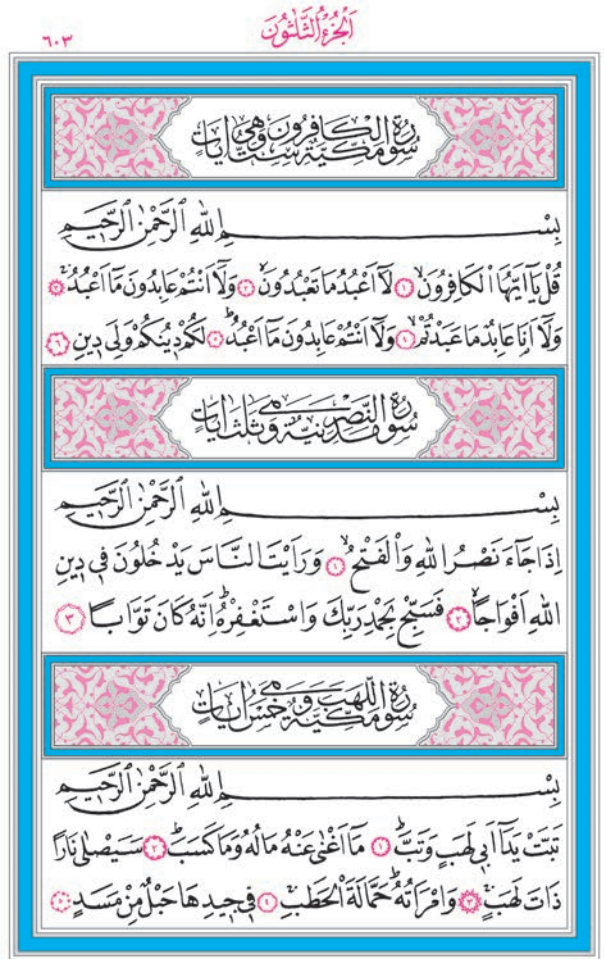 اَلْجُزْءُ الثَّلٰثُونَ
٦٠٣
سُورَةُ الْكَافِرُونَ مَكِّيَّةٌ وَهِيَ سِتُّ اٰيَاتٍ
بِسْمِ اللّٰهِ الرَّحْمٰنِ الرَّحٖيمِ
قُلْ يَٓا اَيُّهَا الْكَافِرُونَۙ ﴿١﴾ لَٓا اَعْبُدُ مَا تَعْبُدُونَۙ ﴿٢﴾ وَلَٓا اَنْتُمْ عَابِدُونَ مَٓا اَعْبُدُۚ ﴿٣﴾
وَلَٓا اَنَا۬ عَابِدٌ مَا عَبَدْتُمْۙ ﴿٤﴾ وَلَٓا اَنْتُمْ عَابِدُونَ مَٓا اَعْبُدُۜ ﴿٥﴾ لَكُمْ دٖينُكُمْ وَلِيَ دٖينِ ﴿٦﴾
سُورَةُ النَّصْرِ مَدَنِيَّةٌ وَهِيَ ثَلٰثُ اٰيَاتٍ
بِسْمِ اللّٰهِ الرَّحْمٰنِ الرَّحٖيمِ
اِذَا جَٓاءَ نَصْرُ اللّٰهِ وَالْفَتْحُۙ ﴿١﴾ وَرَاَيْتَ النَّاسَ يَدْخُلُونَ فٖي دٖينِ
اللّٰهِ اَفْوَاجًاۙ ﴿٢﴾ فَسَبِّحْ بِحَمْدِ رَبِّكَ وَاسْتَغْفِرْهُۜ اِنَّهُ كَانَ تَوَّابًا ﴿٣﴾
سُورَةُ اللَّهَبِ مَكِّيَّةٌ وَهِيَ خَمْسُ اٰيَاتٍ
بِسْمِ اللّٰهِ الرَّحْمٰنِ الرَّحٖيمِ
تَبَّتْ يَدَٓا اَبٖي لَهَبٍ وَتَبَّۜ ﴿١﴾ مَٓا اَغْنٰى عَنْهُ مَالُهُ وَمَا كَسَبَۜ ﴿٢﴾ سَيَصْلٰى نَارًا
ذَاتَ لَهَبٍۚ ﴿٣﴾ وَامْرَاَتُهُۜ حَمَّالَةَ الْحَطَبِۚ ﴿٤﴾ فٖي جٖيدِهَا حَبْلٌ مِنْ مَسَدٍ ﴿٥﴾